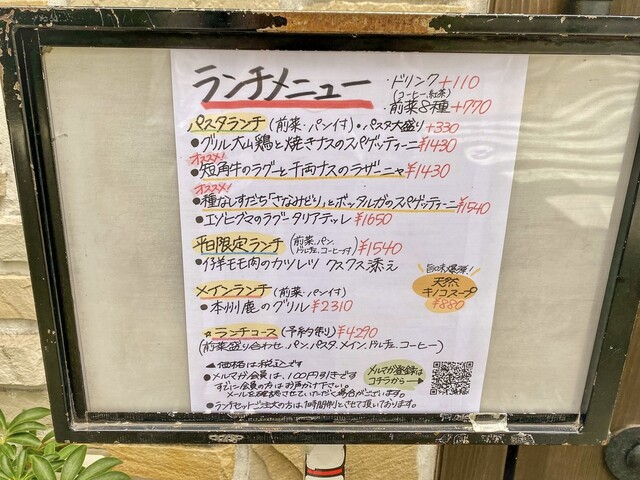 ランチメニュー
・ドリンク+110
(コーヒー,紅茶)
・前菜8種+770
パスタランチ(前菜・パン付)・パスタ大盛り+330
●グリル大山鶏と焼きナスのスパゲッティーニ¥1430
オススメ!
●短角牛のラグーと千両ナスのラザーニャ¥1430
オススメ!
●種なしすだち「さなみどり」とボッタルガのスパゲッティーニ¥1540
●エゾヒグマのラグータリアテッレ¥1650
平日限定ランチ(前菜、パン、ドルチェ、コーヒー付)¥1540
●仔羊モモ肉のカツレツ クスクス添え
旨味爆弾!
天然
キノコスープ
¥880
メインランチ(前菜・パン付)
●本州鹿のグリル¥2310
☆ランチコース(予約制)¥4290
(前菜盛り合わせ、パン、パスタ、メイン、ドルチェ、コーヒー)
▲価格は税込です
●メルマガ会員は、100円引きです
すでに会員の方はお声がけ下さい。
メールを確認させていただく場合がございます。
メルマガ登録は
コチラから→
●ランチセットご注文の方は、1時間制とさせて頂いております。